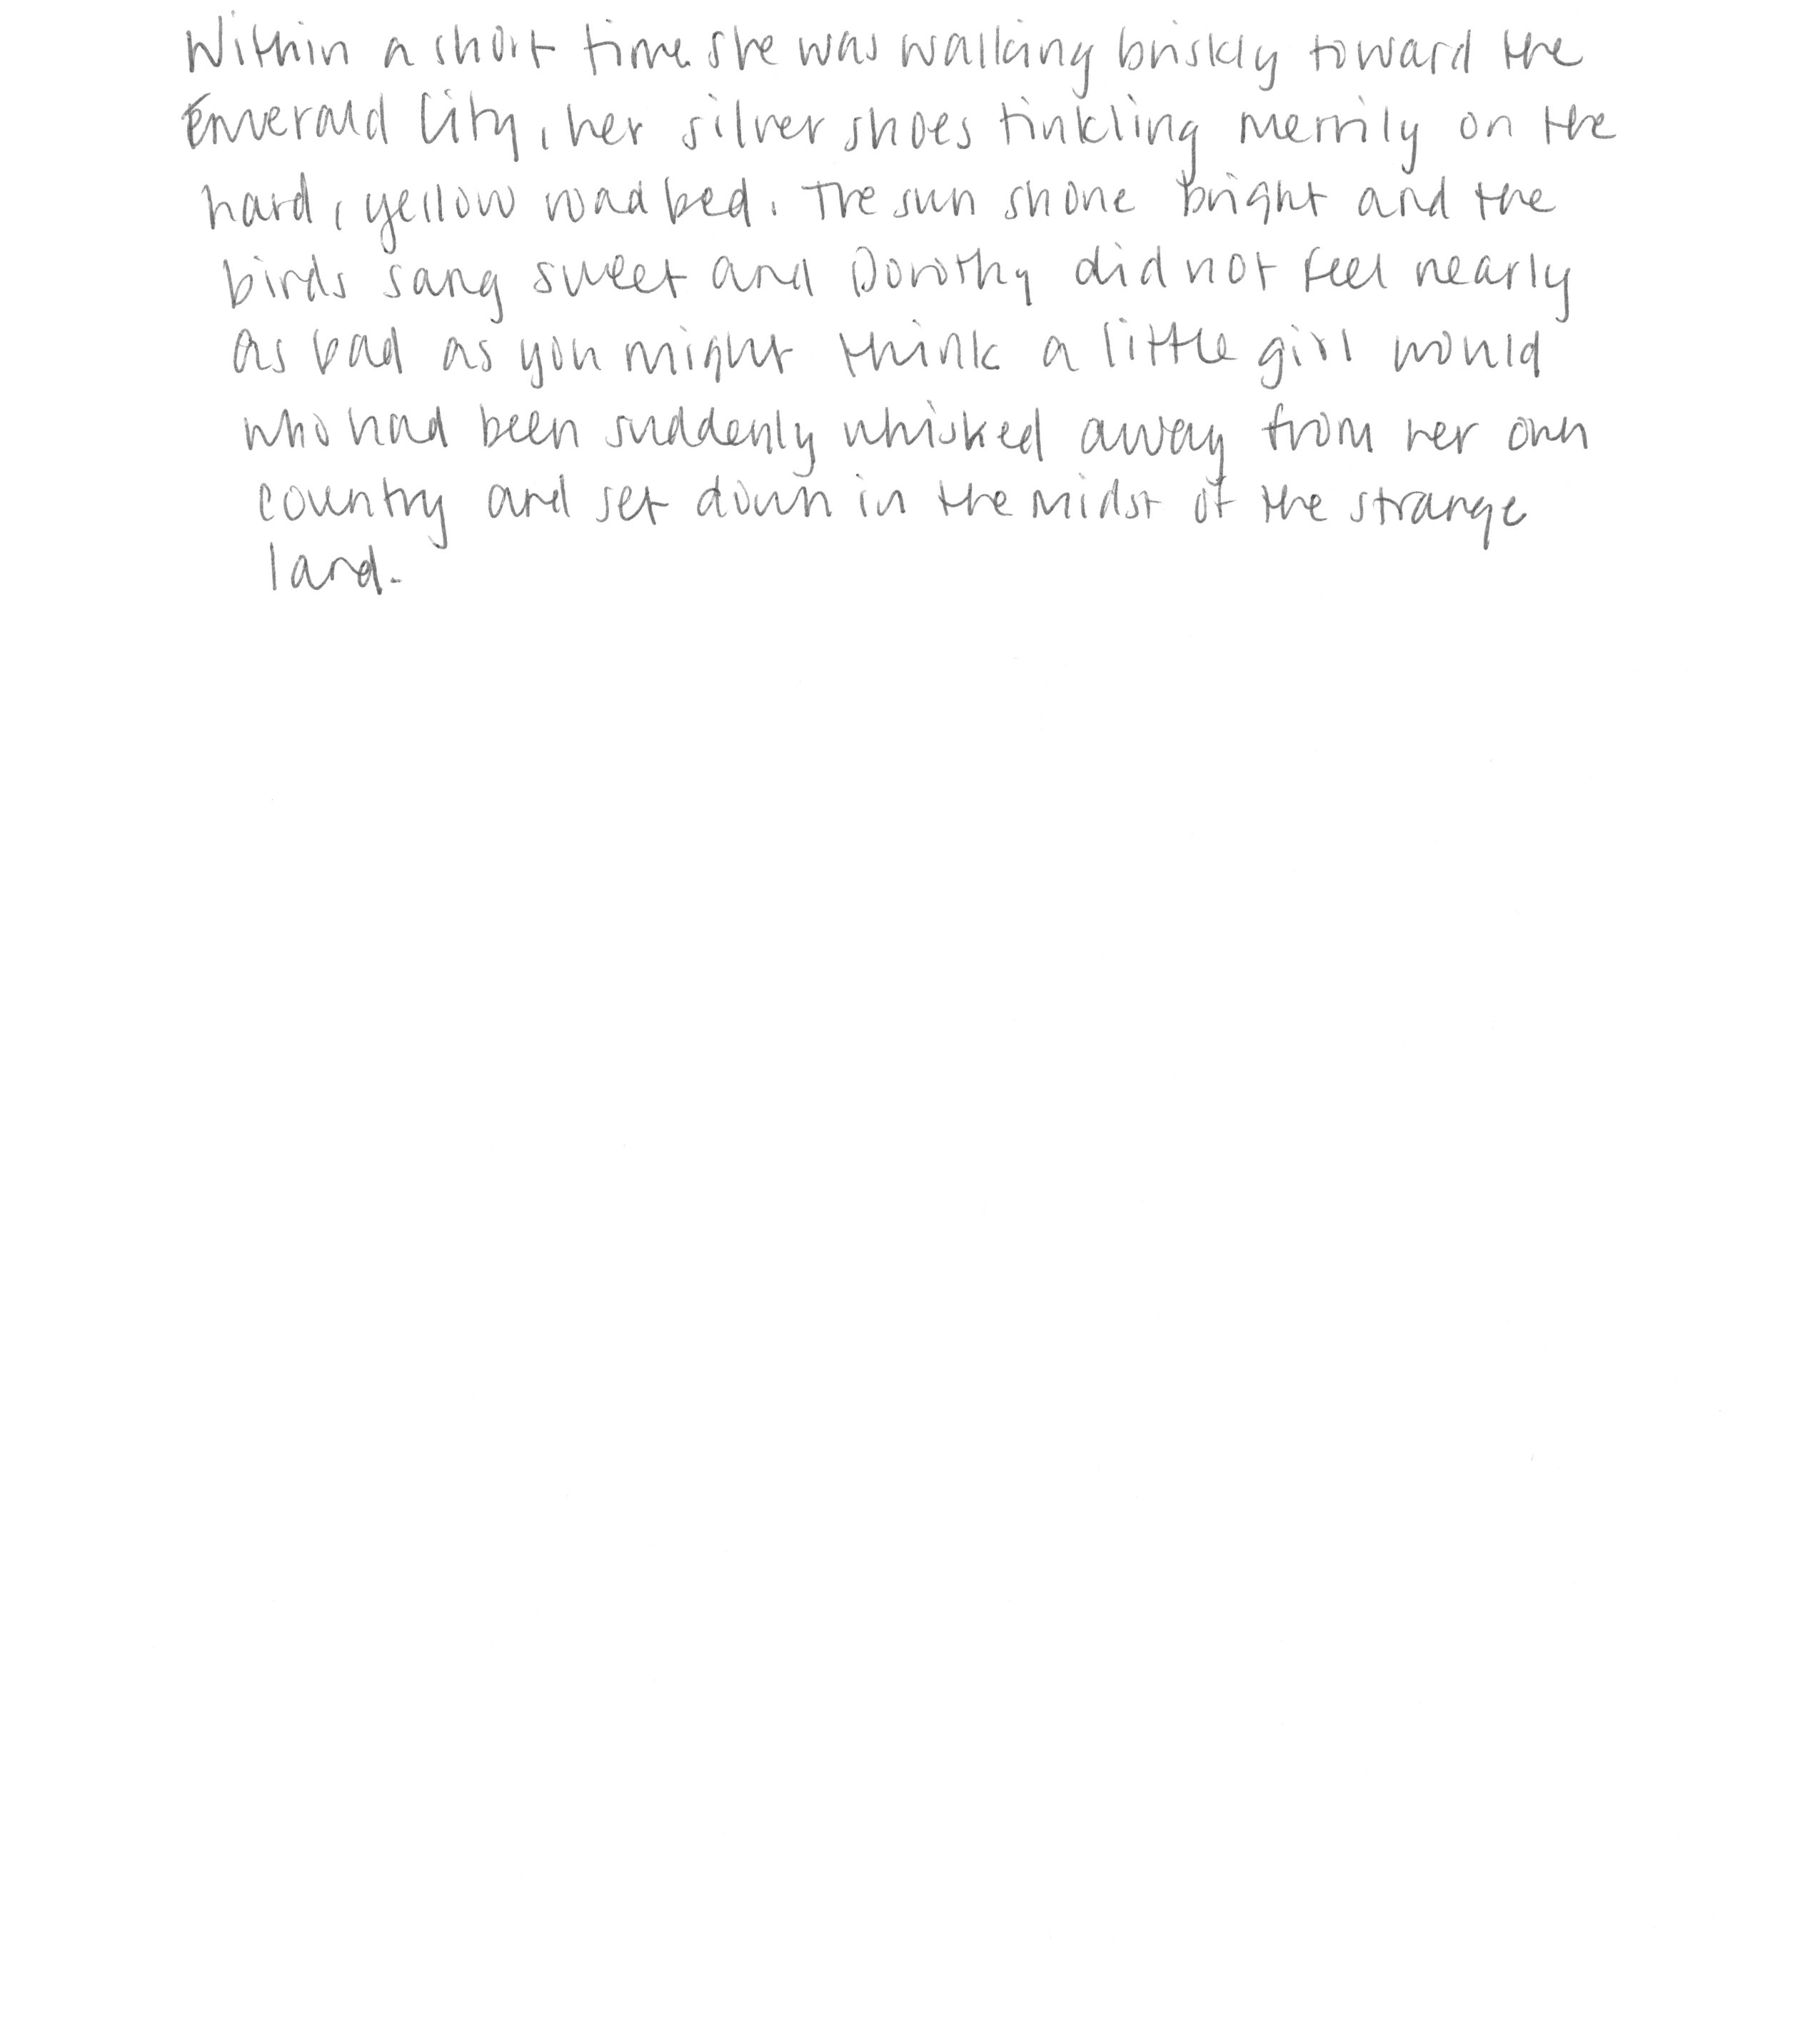 Within a short time she was walking briskly toward the
Emerald City, her silver shoes tinkling merrily on the
hard, yellow road bed. The sun shone bright and the
birds sang sweet and Dorothy did not feel nearly
as bad as you might think a little girl would
who had been suddenly whisked away from her own
country and set down in the midst of the strange
land.